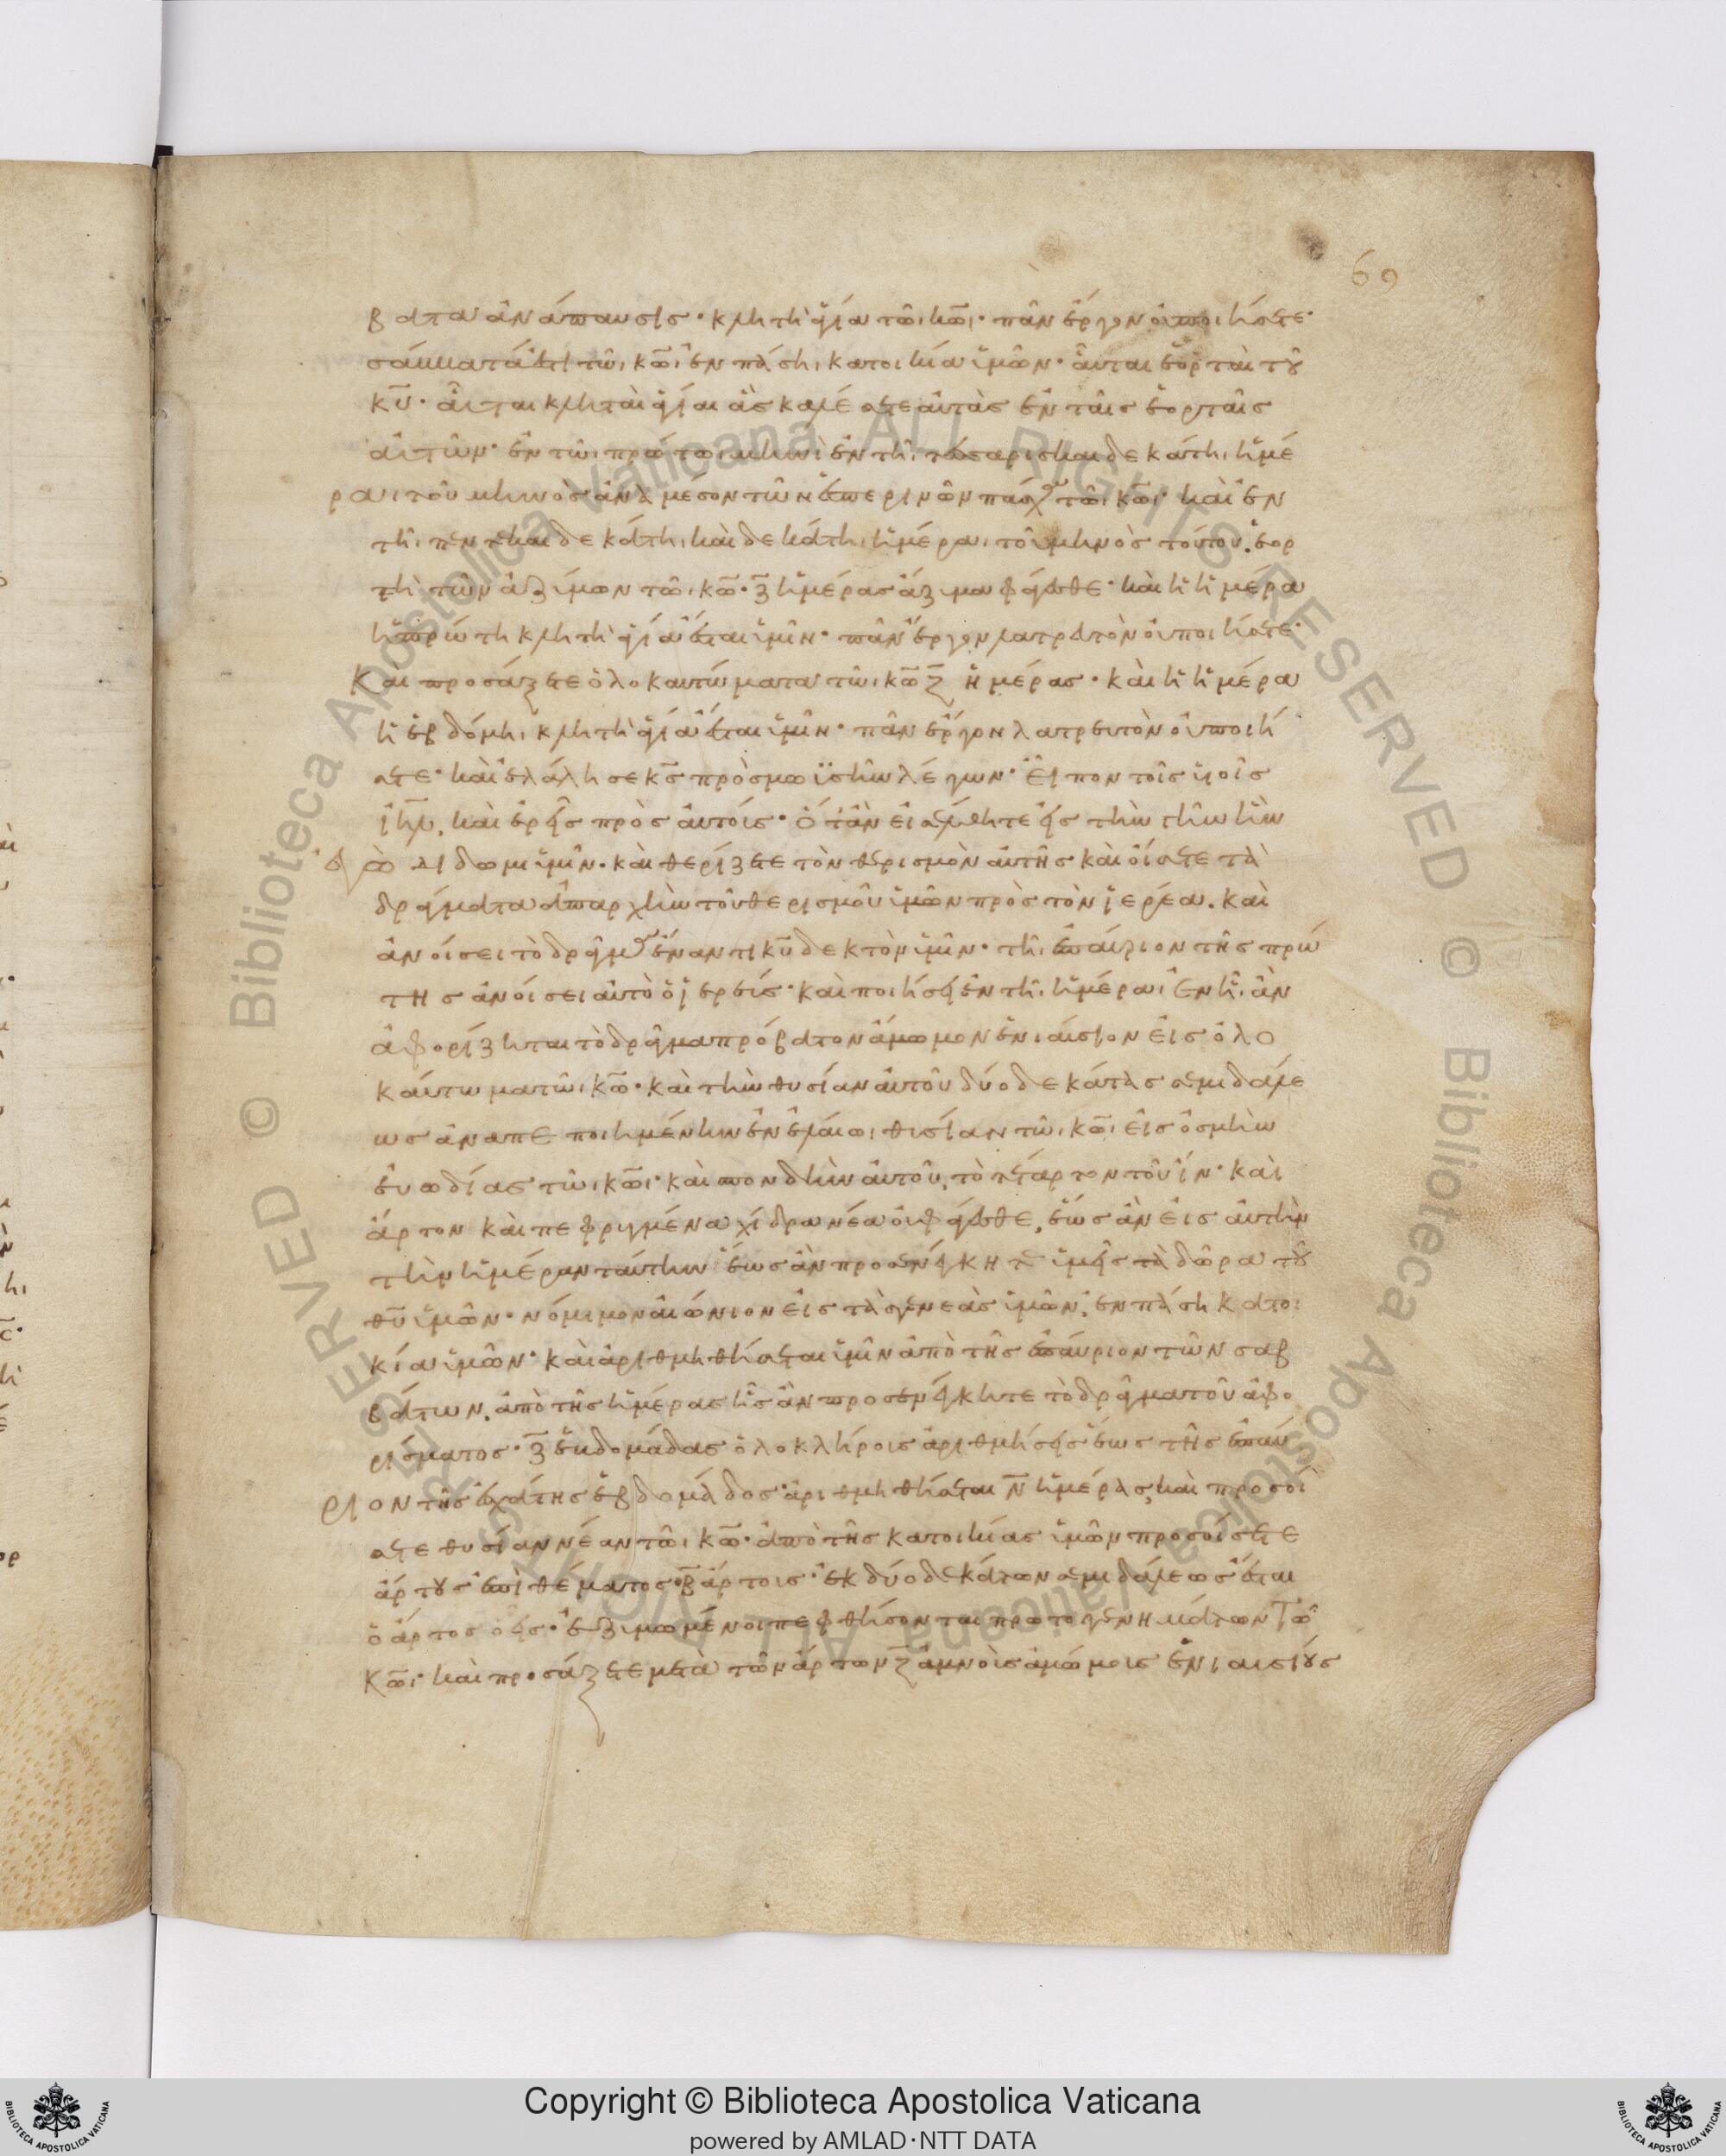 69
βατα ἀνάπαυσις· κλητὴ ἁγία τῶι κω̅ι· πᾶν ἔργον οὐ ποιήσετε·
σάμματά ἐστι τῶι κω̅ι ἐν πάσηι κατοικία ὑμῶν· αὗται ἑορταὶ τοῦ
κυ̅· αὗται κληταὶ ἁγίαι ἃς καλέσετε αὐτὰς ἐν ταῖς ἑορταῖς
αὐτῶν· ἐν τῶι πρώτωι μηνὶ ἐν τῆι τεσσαρισκαιδεκάτηι ἡμέ
ραι τοῦ μηνὸς ἀνὰ μέσον τῶν ἑσπερινῶν πάσχα τῶι κω̅ι· καὶ ἐν
τῆι πεντεκαιδεκάτηι καὶ δεκάτηι ἡμέραι τοῦ μηνὸς τούτου. ἑορ
τὴ τῶν ἀζύμων τῶι κω̅· ζ̅ ἡμέρας ἄζυμα φάγεσθε· καὶ ἡ ἡμέρα
ἡ πρώτη κλητὴ ἁγία ἔσται ὑμῖν· πᾶν ἔργον λατρευτὸν οὐ ποιήσετε·
Καὶ προσάξετε ὁλοκαυτώματα τῶι κω̅ ζ̅ ἡμέρας· καὶ ἡ ἡμέρα
ἡ ἑβδόμηι κλητὴ ἁγία ἔσται ὑμῖν· πᾶν ἔργον λατρευτὸν οὐ ποιή
σετε· καὶ ἐλάλησε κς̅ πρὸς μωϋσῆν λέγων· Εἶπον τοῖς υἱοῖς
ιηλ̅, καὶ ἐρεῖς πρὸς αὐτούς· Ὅταν εἰσέλθητε εἰς τὴν γῆν ἣν
ἐγὼ δίδωμι ὑμῖν· καὶ θερίζετε τὸν θερισμὸν αὐτῆς καὶ οἴσετε τὰ
δράγματα ἀπαρχὴν τοῦ θερισμοῦ ὑμῶν πρὸς τὸν ἱερέα. καὶ
ἀνοίσει τὸ δράγμα ἔναντι κυ̅ δεκτὸν ὑμῖν· τῆι ἐπαύριον τῆς πρώ
της ἀνοίσει αὐτὸ ὁ ἱερεύς· καὶ ποιήσει ἐν τῆι ἡμέραι ἐν ἧι ἂν
ἀφορίζηται τὸ δράγμα πρόβατον ἄμωμον ἐνιαύσιον εἰς ὁλο
καύτωμα τῶι κω̅· καὶ τὴν θυσίαν αὐτοῦ δύο δεκάτας σεμιδάλε
ως ἀναπεποιημένην ἐν ἐλαίωι θυσίαν τῶι κω̅ι εἰς ὀσμὴν
εὐωδίας τῶι κω̅ι· καὶ σπονδὴν αὐτοῦ, τὸ τέταρτον τοῦ ἵν· καὶ
ἄρτον καὶ πεφρυγμένα χίδρα νέα οὐ φάγεσθε, ἕως ἂν εἰς αὐτὴν
τὴν ἡμέραν ταύτην ἕως ἂν προσενέγκητε ὑμεῖς τὰ δῶρα τοῦ
θυ̅ ὑμῶν· νόμιμον αἰώνιον εἰς τὰς γενεὰς ὑμῶν, ἐν πάση κατοι
κία ὑμῶν· καὶ ἀριθμηθήσεται ὑμῖν ἀπὸ τῆς ἐπαύριον τῶν σαβ
βάτων, ἀπὸ τῆς ἡμέρας ἧς ἂν προσενέγκητε τὸ δράγμα τοῦ ἀφο
ρίσματος· ζ̅ ἑβδομάδας ὁλοκλήροις ἀριθμήσεις ἕως τῆς ἐπαύ
ριον τῆς ἐσχάτης ἑβδομάδος· ἀριθμηθήσεται ν̅ ἡμέρας, καὶ προσοί
σετε θυσίαν νέαν τῶι κω̅· ἀπὸ τῆς κατοικίας ὑμῶν προσοίσετε
ἄρτους ἐπὶ θέματος β̅ ἄρτοις· ἐκ δύο δεκάτων σεμιδάλεως ἔσται
ὁ ἄρτος ὁ εἷς· ἐζυμωμένοι πεφθήσονται πρωτογενημάτων τῶ
Κω̅ι· καὶ προσάξετε μετὰ τῶν ἄρτων ζ̅ ἀμνοὺς ἀμώμους ἐνιαυσίους
Copyright © Biblioteca Apostolica Vaticana
powered by AMLAD·NTT DATA